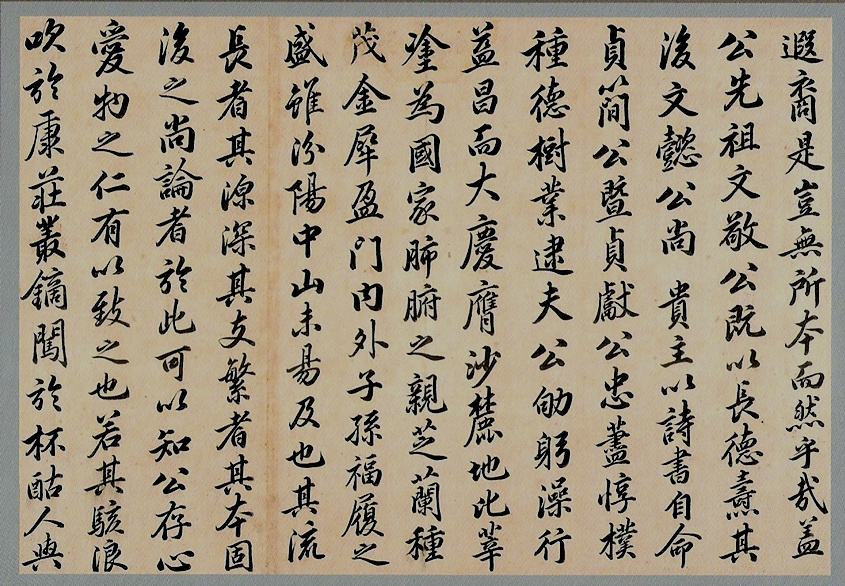 遐裔是豈無所本而然乎哉盖
公先祖文敬公既以長德燾其
後文懿公尚貴主以詩書自命
貞簡公暨貞獻公忠藎惇樸
種德樹業逮夫公劬躬澡行
益昌而大慶膺沙麓地比莘
塗為國家肺腑之親芝蘭種
茂金犀盈門内外子孫福履之
盛雖汾陽中山未易及也其流
長者其源深其支繁者其本固
後之尚論者於此可以知公存心
愛物之仁有以致之也若其駭浪
吹於康莊叢鏑闖於杯酤人與